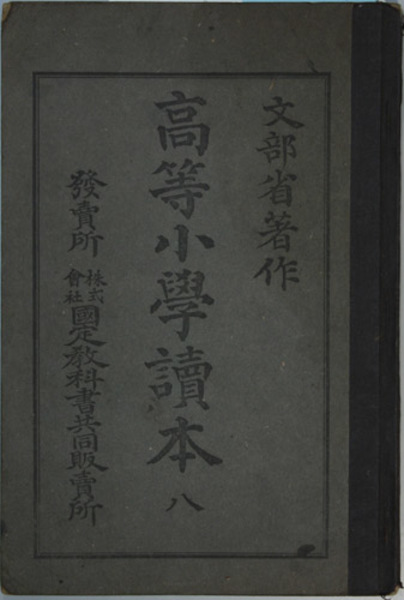 文部省著作
高等小學讀本 八
發賣所 株式會社 國定教科書共同販賣所